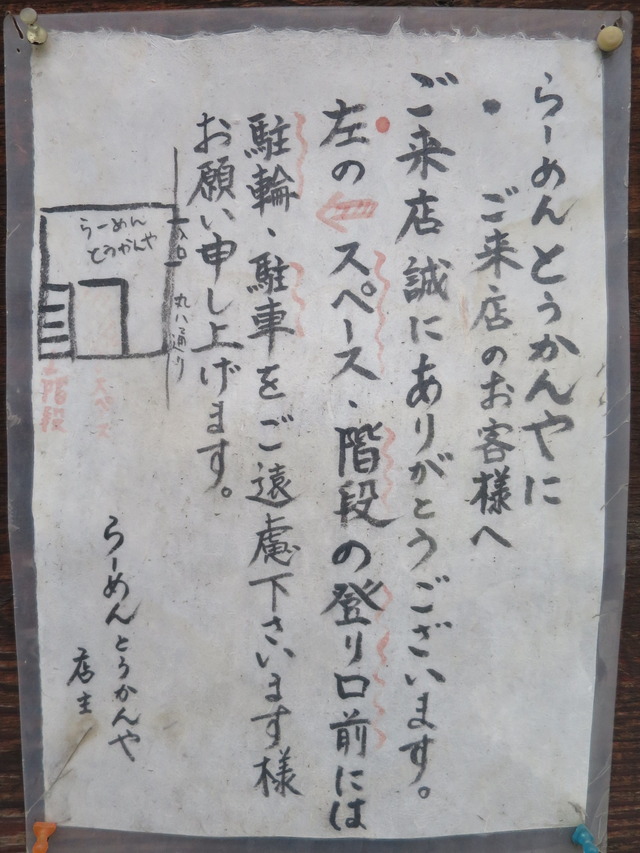 らーめんとうかんやに
ご来店のお客様へ
ご来店誠にありがとうございます。
左のスペース、階段の登り口前には
駐輪、駐車をご遠慮下さいます様
お願い申し上げます。
入口
丸八通り
らーめん
とうかんや
スペース
階段
らーめんとうかんや
店主